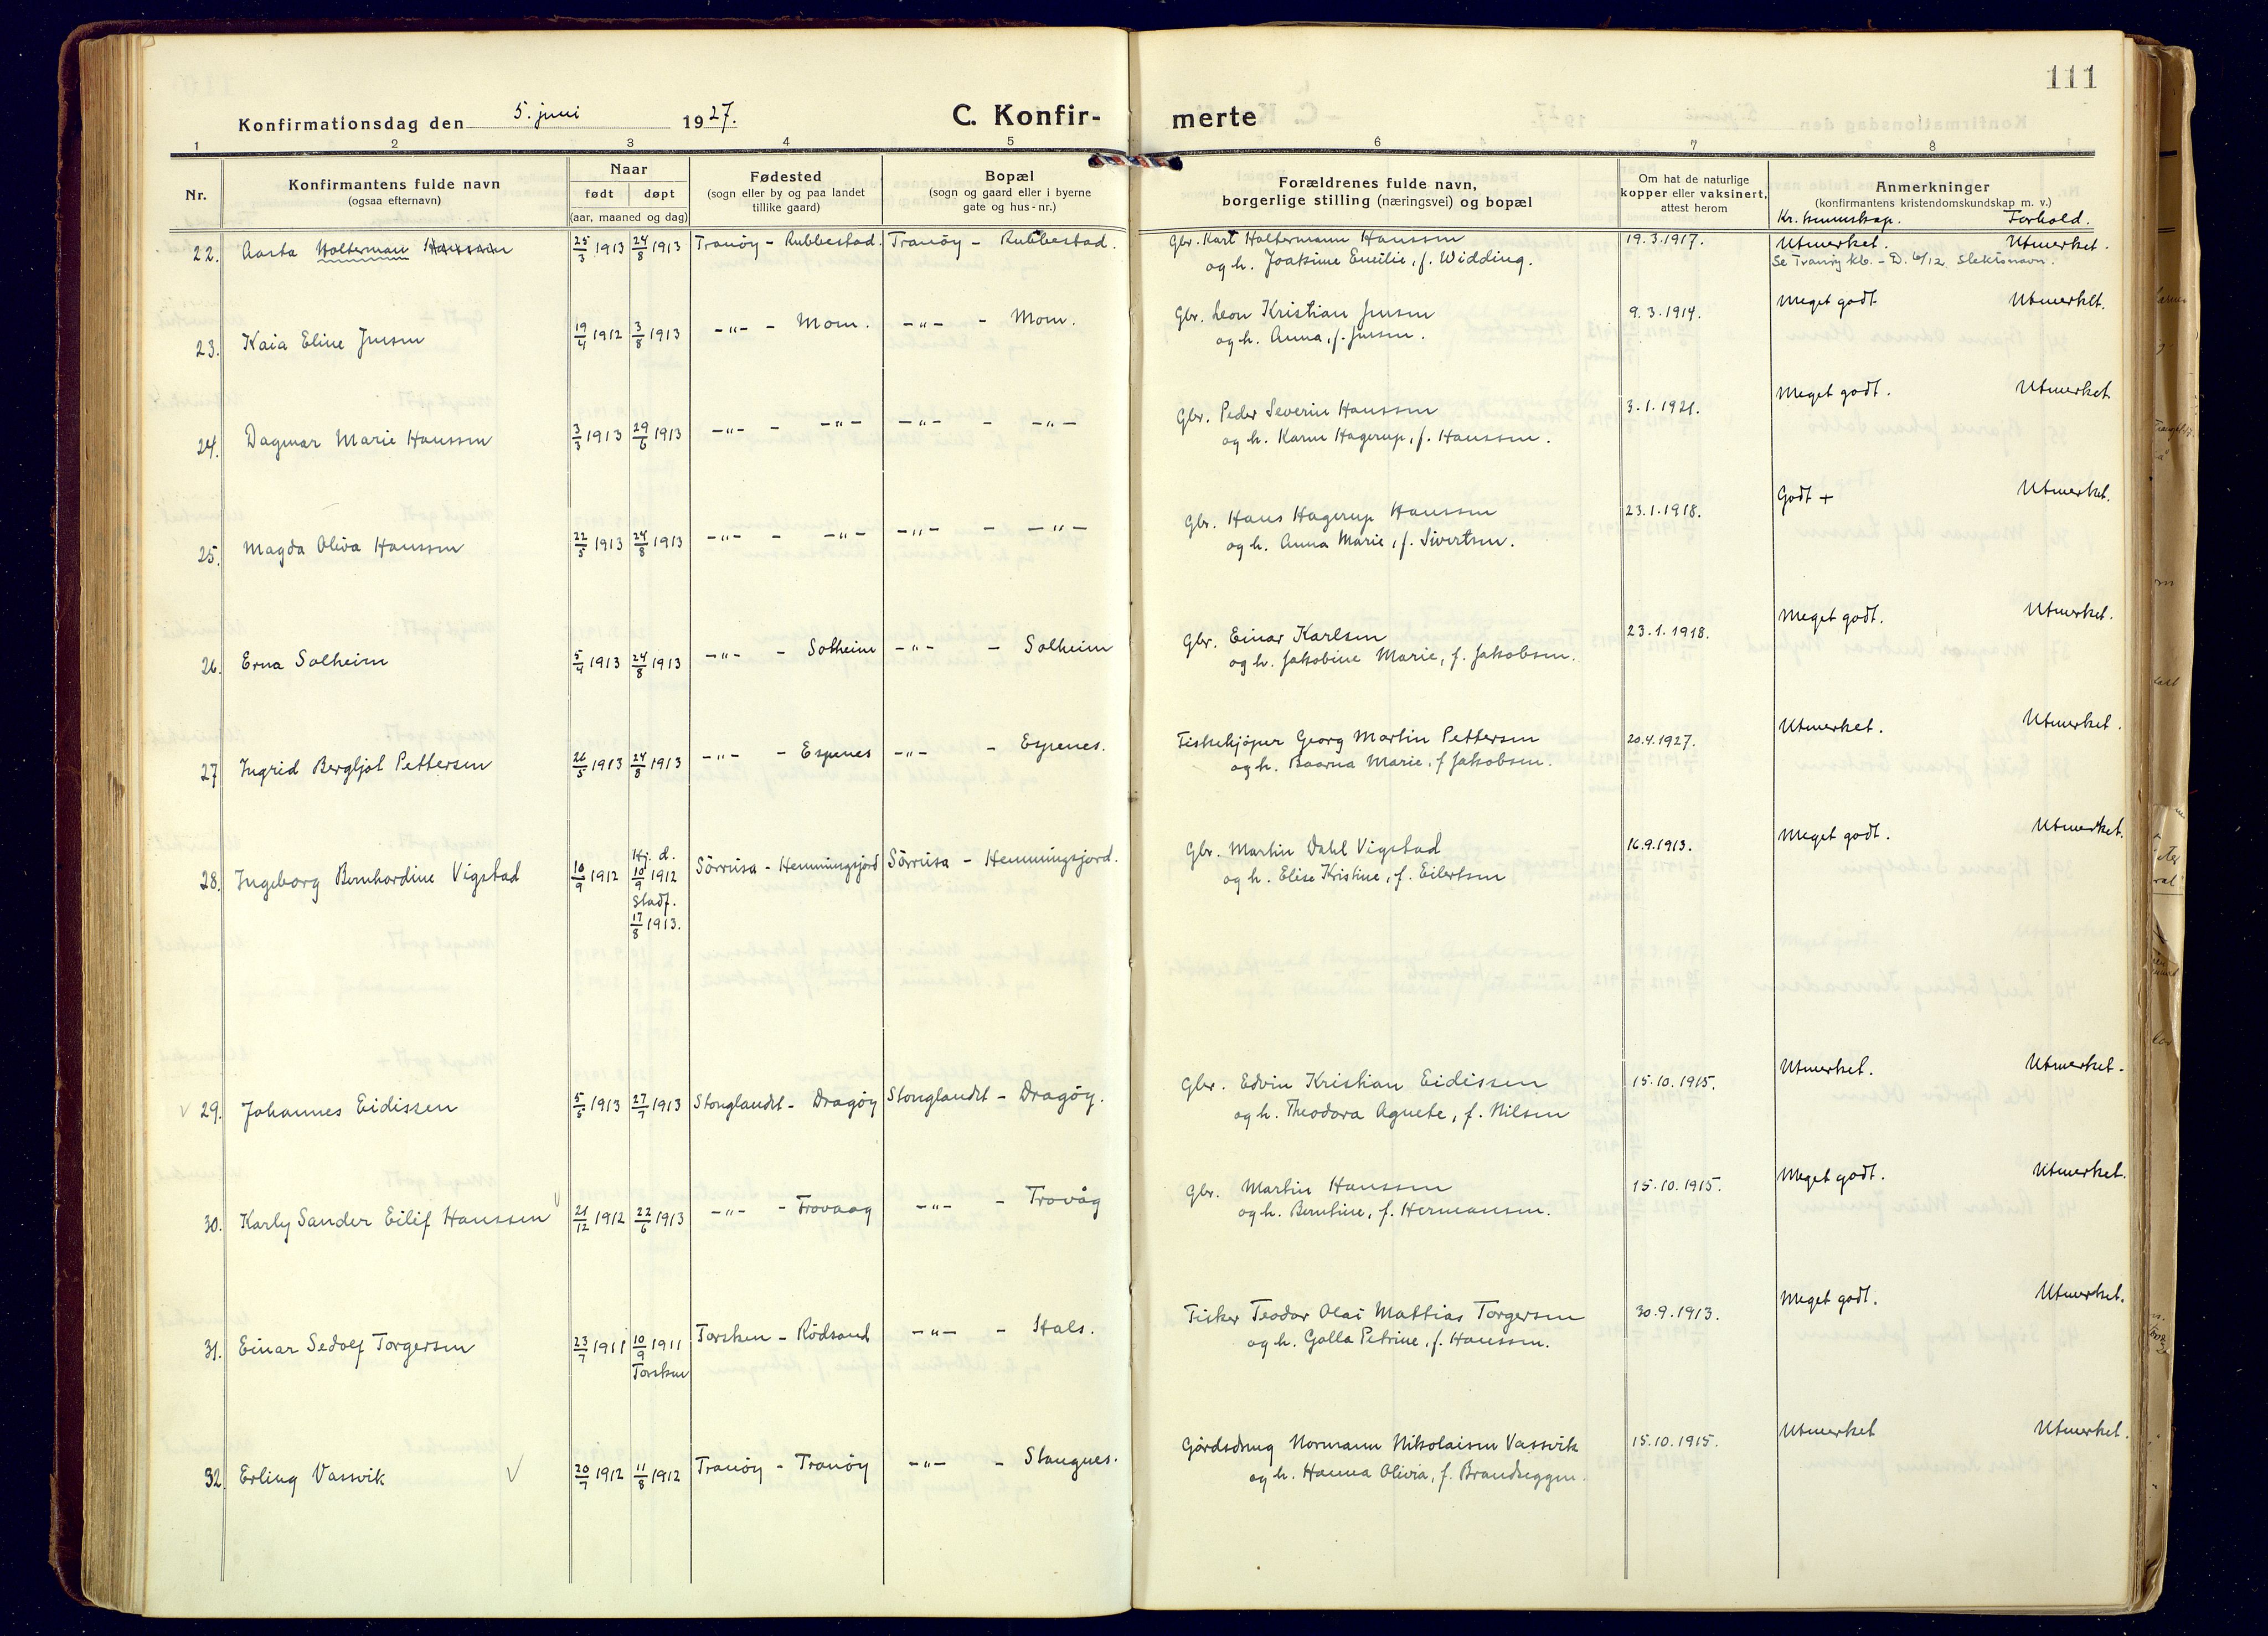 111
Konfirmationsdag den 5. juni 1927. C. Konfirmerte
1 2 3 4 5 6 7 8
Nr.
Konfirmantens fulde navn
(ogsaa efternavn)
Naar
født døpt
(aar, maaned og dag)
Fødested
(sogn eller by og paa landet
tillike gaard)
Bopæl
(sogn og gaard eller i byerne
gate og hus-nr.)
Forældrenes fulde navn,
borgerlige stilling (næringsvei) og bopæl
Om hat de naturlige
kopper eller vaksinert,
attest herom
Anmerkninger
(konfirmantens kristendomskundskap m. v.)
Kr. kunnskap. Forhold.
22. Aasta Holterman Hanssen 25/3 1913 24/8 1913 Tranöy - Rubbestad. Tranöy - Rubbestad. Gbr. Karl Holtermann Hanssen 19.3.1917. Utmerket. Utmerket.
og h. Joakime Emilie, f. Widding. Se Tranöy kb. - D. 6/12 slektsnavn.
23. Kaia Eline Jensen 19/4 1912 3/8 1913 -"- - Mom. -"- - Mom. Gbr. Leon Kristian Jensen 9.3.1914. Meget godt Utmerket.
og h. Anna, f. Jensen.
24. Dagmar Marie Hanssen 3/3 1913 29/6 1913 -"- - -"- -"- - -"- Gbr. Peder Severin Hanssen 3.1.1921. Meget godt. Utmerket
og h. Karen Hagerup, f. Hanssen.
25. Magda Oliva Hanssen 22/5 1913 24/8 1913 -"- - -"- -"- - -"- Gbr. Hans Hagerup Hanssen 23.1.1918. Godt + Utmerket.
og h. Anna Marie, f. Sivertsen.
26. Erna Solheim 5/4 1913 24/8 1913 -"- - Solheim -"- - Solheim Gbr. Einar Karlsen 23.1.1918. Meget godt. Utmerket.
og h. Jakobine Marie, f. Jakobsen.
27 Ingrid Bergljot Pettersen 26/5 1913 24/8 1913 -"- - Espenes -"- - Espenes. Fiskekjöper Georg Martin Pettersen 20.4.1927. Utmerket. Utmerket.
og h. Baarna Marie, f Jakobsen.
28. Ingeborg Bernhardine Vigstad 10/9 1912 Hj. d. 10/9 1912 Sörreisa - Hemmingsjord Sörreisa - Hemmingsjord. Gbr. Martin Dahl Vigstad 16.9.1913. Meget godt. Utmerket.
stadf. 17/8 1913. og h. Elise Kristine, f. Eilertsen
29. Johannes Eidissen 5/5 1913 27/7 1913 Stonglandet - Dragöy Stonglandet - Dragöy. Gbr. Edvin Kristian Eidissen 15.10.1915. Utmerket. Utmerket.
og h. Theodora Agnete, f. Nilsen
30. Karly Sander Eilif Hanssen 21/12 1912 22/6 1913 -"- - Trovaag -"- - Trovåg Gbr. Martin Hanssen 15.10.1915. Meget godt. Utmerket.
og h. Berntine, f. Hermansen.
31. Einar Sedolf Torgersen 23/7 1911 10/9 1911 Torsken - Rödsand -"- - Hals. Fisker Teodor Olai Mattias Torgersen 30.9.1913. Meget godt. Utmerket.
Torsken og h. Galla Petrine, f. Hanssen.
32. Erling Vassvik 20/7 1912 11/8 1912 Tranöy - Tranöy -"- - Stangnes. Gårdsdreng Normann Nikolaisen Vassvik 15.10.1915. Utmerket Utmerket.
og h. Hanna Olivia, f. Brandseggen.